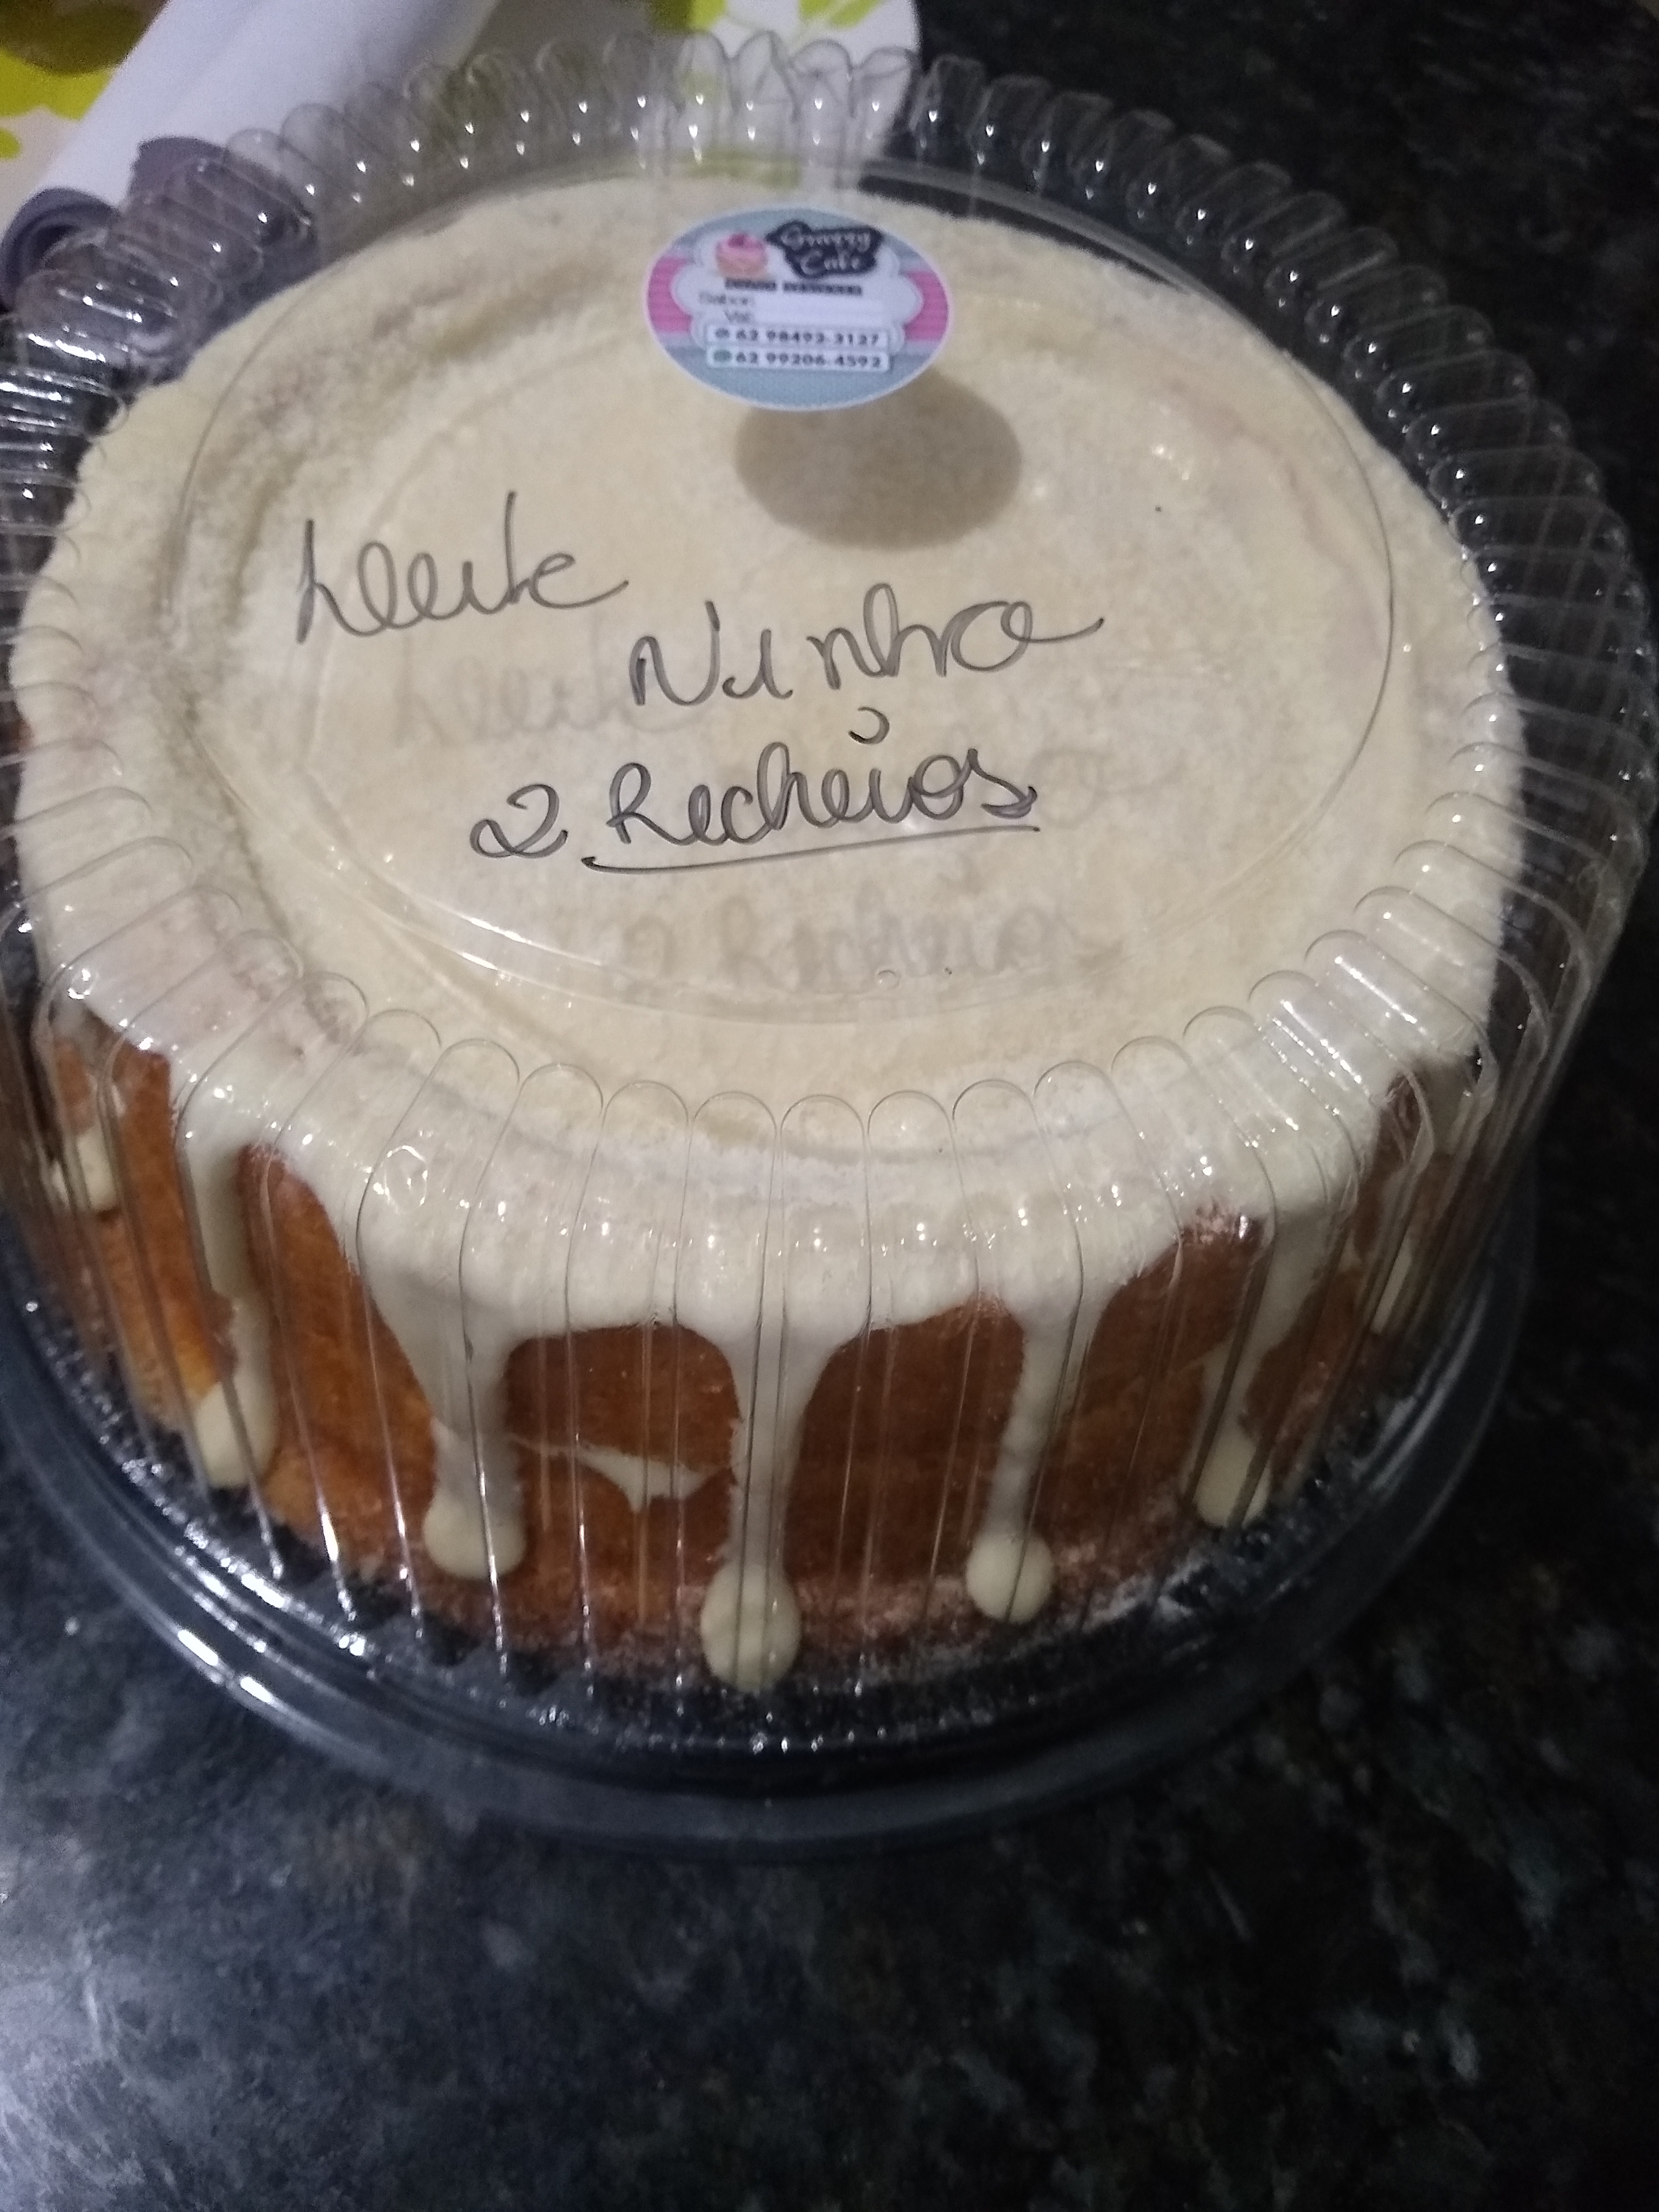 Cake
Sabor:
Val:
62 98493-3127
62 99206-4592
Leite
Ninho
2 Recheios